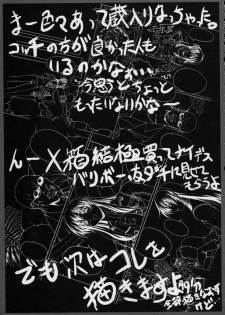 まー色々あって蔵入りなっちゃった。
コッチの方が良かった人も
いるのかなぁい…
今思うとちょっと
もったいないかなー
んーX箱結極買ってナイデス
バリボー直ダチに見せて
もらうよ
でも次はコレを
描きますよ